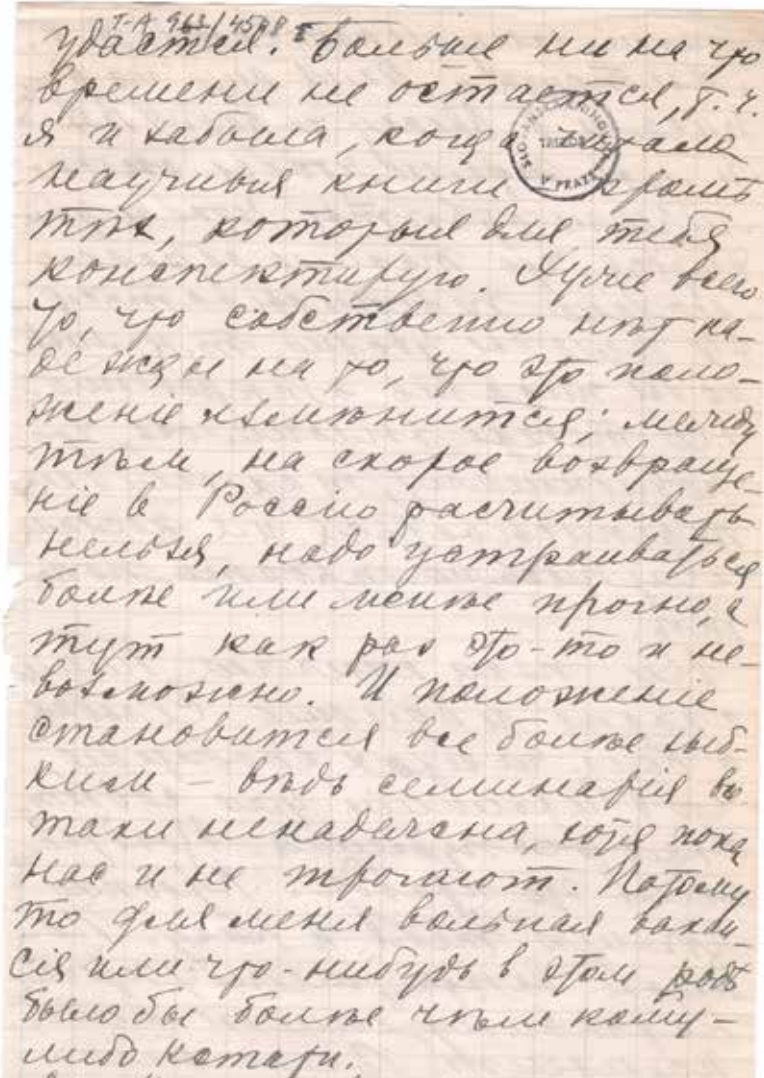 T-A 963/4508 I
удастся. Больше ни на что
времени не остается, т. ч.
я и забыла, когда читала
научныя книги кромѣ
тѣх, которыя для тебя
конспектирую. Хуже всего
то, что собственно нѣт на-
дежды на то, что это поло-
женіе измѣнится; между
тѣм, на скорое возвраще-
ніе в Россію расчитывать
нельзя, надо устраиваться
болѣе или менѣе прочно, а
тут как раз это-то и не-
возможно. И положеніе
становится все болѣе зыб-
ким — вѣдь семинарія все
таки ненадежна, хотя пока
нас и не трогают. Потому
то для меня вольная вакан
сія или что-нибудь в этом родѣ
было бы болѣе чѣм кому-
либо кстати.
V PRAZE